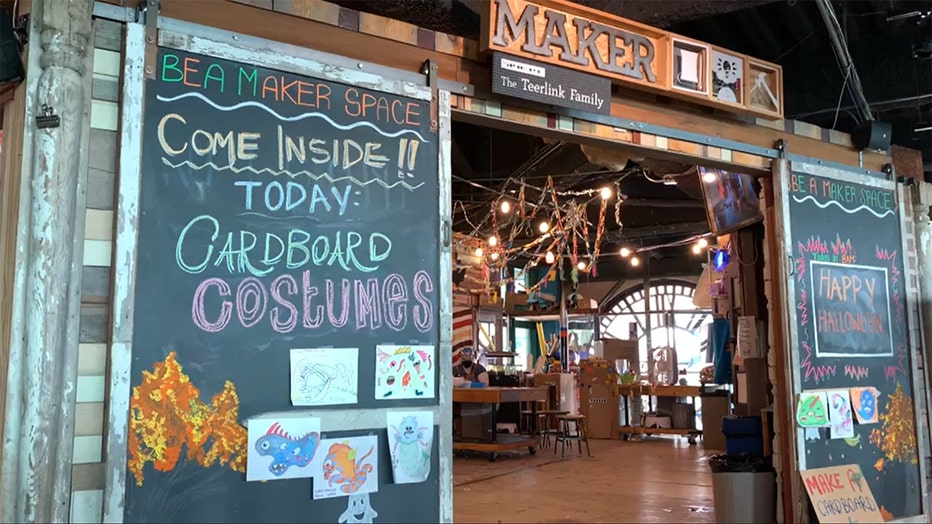 BE A MAKER SPACE
COME INSIDE!!
TODAY:
CARDBOARD
COSTUMES
MAKER
The Teerlink Family
BE A MAKER SPACE
Today in BAM:
HAPPY
HALLOWEEN
MAKE A
CARDBOARD